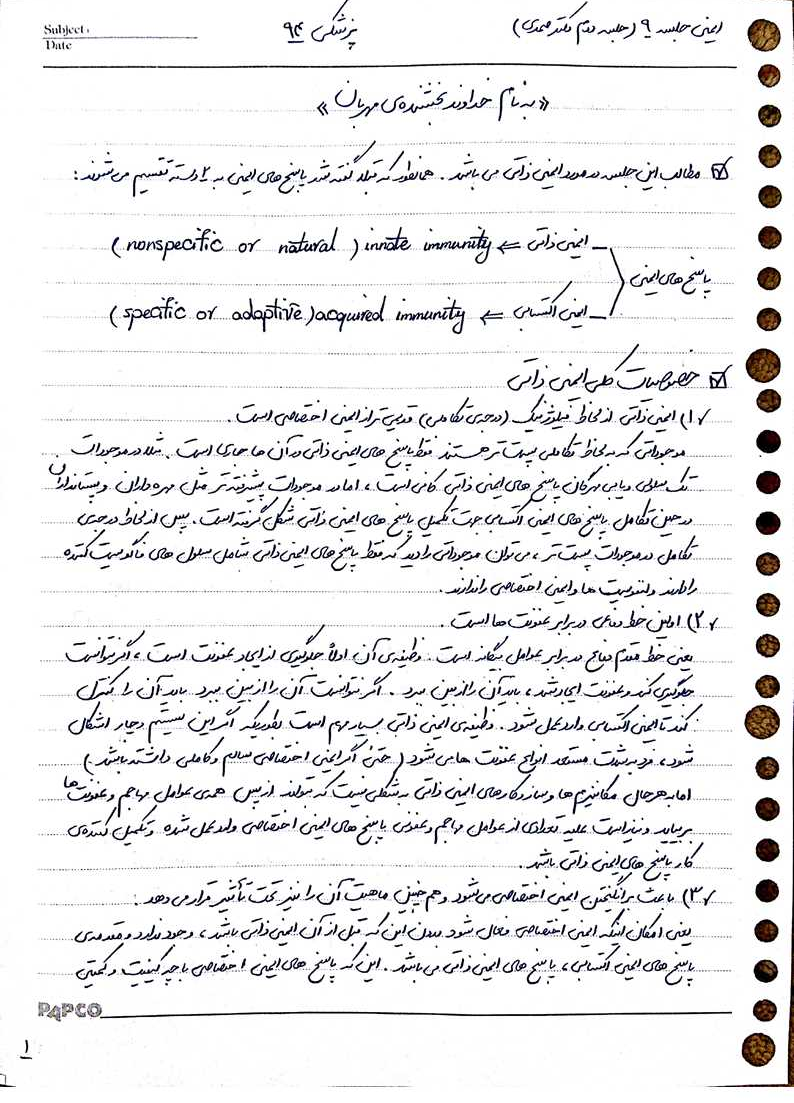 ایمنی جلسه ۹ (جلسه دوم دکتر صمدی)
پزشکی ۹۴
Subject:
Date
«به نام خداوند بخشنده‌ی مهربان»
مطالب این جلسه در مورد ایمنی ذاتی می باشد. همانطور که قبلا گفته شد پاسخ های ایمنی به ۲ دسته تقسیم می شوند:
پاسخ های ایمنی
ایمنی ذاتی ⇐ innate immunity (nonspecific or natural)
ایمنی اکتسابی ⇐ acquired immunity (specific or adaptive)
خصوصیات کلی ایمنی ذاتی
۱) ایمنی ذاتی از لحاظ فیلوژنیک (درجه‌ی تکاملی) قدیمی تر از ایمنی اختصاصی است.
موجوداتی که به لحاظ تکاملی پست تر هستند فقط پاسخ های ایمنی ذاتی در آن ها حاکی است. مثلا در موجودات
تک سلولی و یا بی مهرگان پاسخ های ایمنی ذاتی کافی است، اما در موجودات پیشرفته تر مثل مهره داران و پستانداران
در حین تکامل پاسخ های ایمنی اکتسابی جهت تکمیل پاسخ های ایمنی ذاتی شکل گرفته است. پس از لحاظ درجه‌ی
تکامل در موجودات پست تر، می توان موجوداتی را دید که فقط پاسخ های ایمنی ذاتی شامل سلول های فاگوسیت کننده
را دارند و لنفوسیت ها و ایمنی اختصاصی را ندارند.
۲) اولین خط دفاعی در برابر عفونت ها است.
یعنی خط مقدم دفاع در برابر عوامل بیگانه است. وظیفه‌ی آن اولاً جلوگیری از ایجاد عفونت است، اگر نتوانست
جلوگیری کند و عفونت ایجاد شد، باید آن را از بین ببرد. اگر نتوانست آن را از بین ببرد باید آن را کنترل
کند تا ایمنی اکتسابی وارد عمل شود. وظیفه‌ی ایمنی ذاتی بسیار مهم است بطوریکه اگر این سیستم دچار اشکال
شود، فرد به شدت مستعد انواع عفونت ها می شود (حتی اگر ایمنی اختصاصی سالم و کاملی داشته باشد.)
اما به هر حال مکانیزم ها و سازوکارهای ایمنی ذاتی به شکلی نیست که بتواند از پس همه‌ی عوامل مهاجم و عفونت ها
بربیاید و نیز است علیه تعدادی از عوامل مهاجم و عفونی پاسخ های ایمنی اختصاصی وارد عمل شده و تکمیل کننده‌ی
کار پاسخ های ایمنی ذاتی باشد.
۳) باعث برانگیختن ایمنی اختصاصی می شود و هم چنین ماهیت آن را نیز تحت تأثیر قرار می دهد.
یعنی امکان اینکه ایمنی اختصاصی فعال شود بدون این که قبل از آن ایمنی ذاتی باشد، وجود ندارد و مقدمه‌ی
پاسخ های ایمنی اکتسابی، پاسخ های ایمنی ذاتی می باشد. این که پاسخ های ایمنی اختصاصی با چه کیفیت و کمیتی
PAPCO
۱